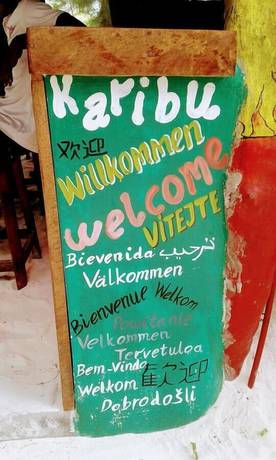 Karibu
欢迎
Willkommen
welcome
VITEJTE
Bievenida ترحيب
Välkommen
Bienvenue Welkom
Powitanie
Velkommen
Tervetuloa
Bem-Vindo
Welkom 歡迎
Dobrodošli